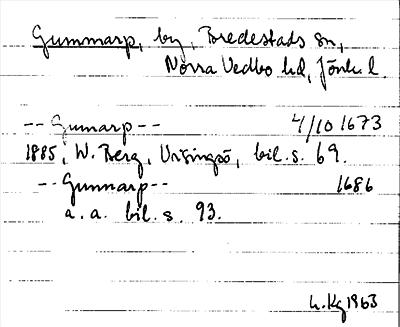 Gummarp, by, Bredestads sn,
Norra Vedbo hd, Jönk. l.
-- Gumarp -- 4/10 1673
1885, W. Berg, Visingsö, bil. s. 69.
-- Gunnarp -- 1686
a. a. bil. s. 93.
h. Kg 1963